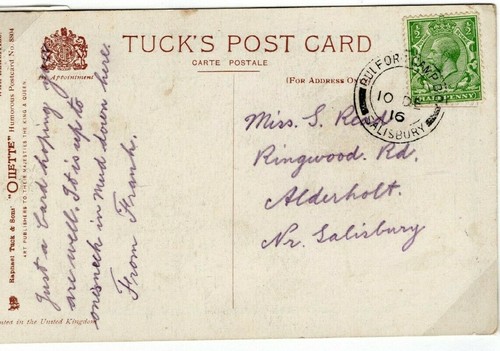 TUCK'S POST CARD
CARTE POSTALE
By Appointment
(For Address On
Raphael Tuck & Sons' "OILETTE" Humorous Postcard No. 8804
ART PUBLISHERS TO THEIR MAJESTIES THE KING & QUEEN.
in the United Kingdom
Just a Card hoping you
are well. It is up to
onesneck in Mud down here.
From Frank.
Miss. S. Read
Ringwood. Rd.
Alderholt.
Nr. Salisbury
BULFORD CAMP
10 DE
16
SALISBURY
HALFPENNY